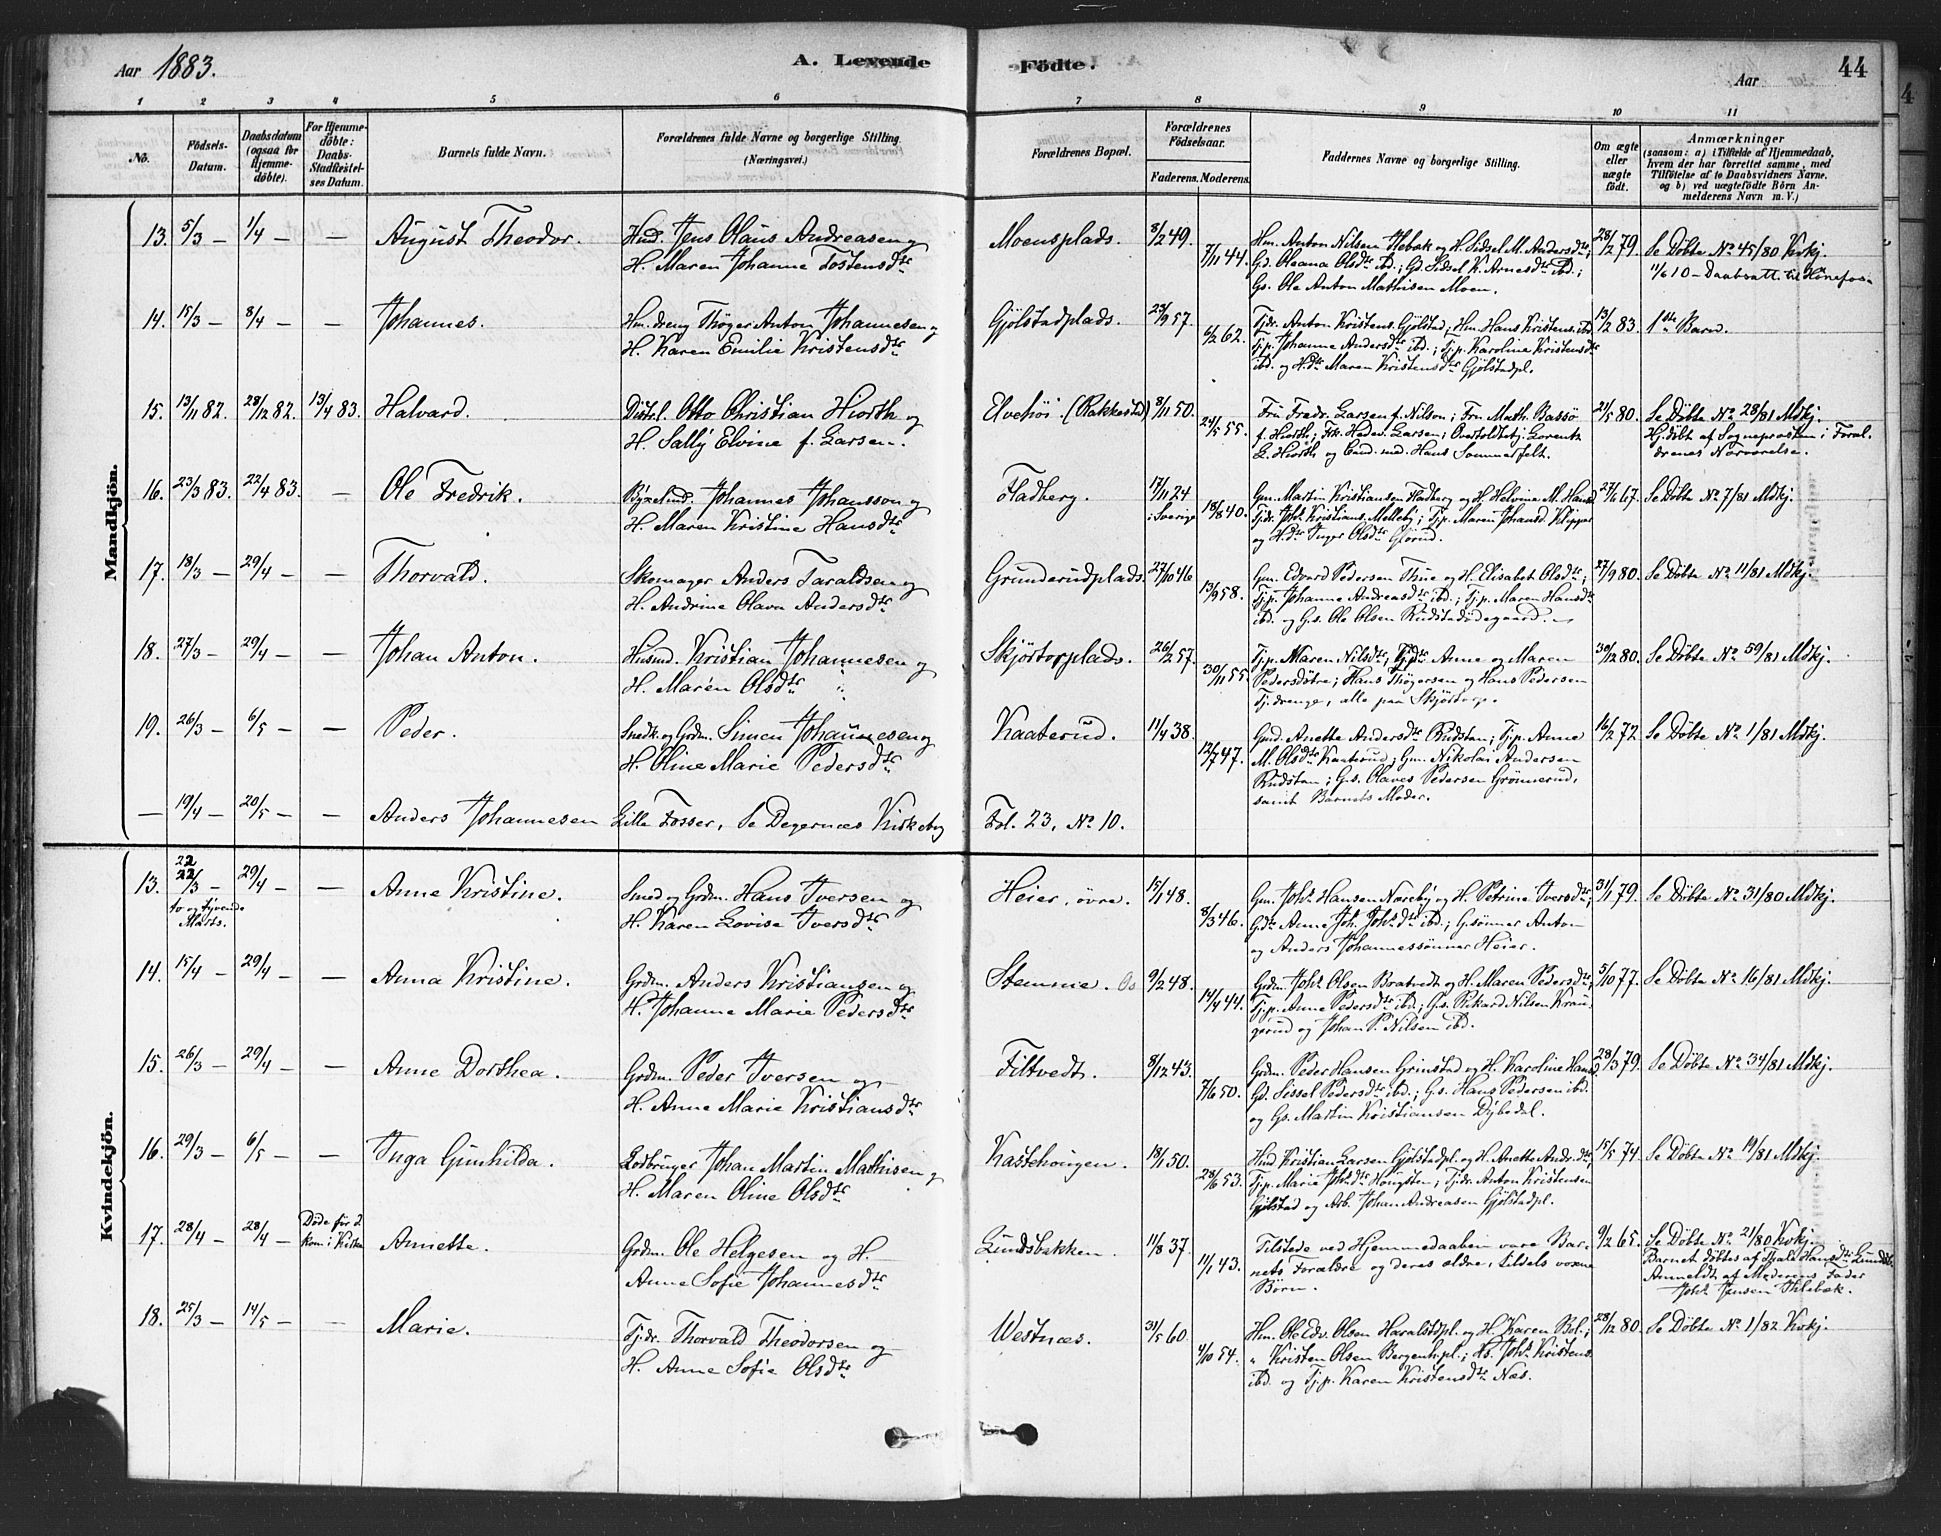 Aar 1883.
A. Levende
Födte.
Aar
44
1 2 3 4 5 6 7 8 9 10 11
No.
Födsels-
Datum.
Daabsdatum
(ogsaa for
Hjemme-
döbte).
For Hjemme-
döbte:
Daabs-
Stadfæstel-
ses Datum.
Barnets fulde Navn.
Forældrenes fulde Navne og borgerlige Stilling.
(Næringsvei.)
Forældrenes Bopæl.
Forældrenes
Födselsaar.
Faderens. Moderens.
Faddernes Navne og borgerlige Stilling.
Om ægte
eller
uægte
födt.
Anmærkninger
(saasom: a) i Tilfælde af Hjemmedaab,
hvem der har forrettet samme, med
Tilföielse af to Daabsvidners Navne,
og b) ved uægtefödte Börn An-
melderens Navn m. V.)
Mandkjön.
13. 5/3 — 1/4 — — August Theodor. Husd. Jens Olaus Andreasen og
H. Maren Johanne Tostensdtr
Moensplads. 8/2 49. 7/11 44.
Hm. Anton Nilsen Hebæk og H. Sidsel M. Andersdtr;
Gd. Oleana Olsdtr ibd.; Gd. Sidsel K. Arnesdtr ibd.;
Gs. Ole Anton Mathisen Moen.
28/12 79. Se Döbte No 45/80 Kvkj.
11/6 10 – Daabsatt. til Hönefos.
14. 15/3 — 8/4 — — Johannes. Hm. dreng Thöger Anton Johannesen og
H. Karen Emilie Kristensdtr
Gjölstadplads. 23/9 57. 6/2 62.
Tjdr. Anton Kristens. Gjölstad; Hm. Hans Kristens. ibd.
Tj.p. Johanne Andersdtr ibd.; Tj.p. Karoline Kristensdtr
ibd. og H.dtr Maren Kristensdtr Gjölstadpl.
13/2 83. 1ste Barn.
15. 13/11 82. 28/12 82. 13/4 83. Halvard. Distrl. Otto Christian Hiorth og
H. Sally Elvine f. Larsen.
Elvehöi. (Rakkestad) 8/11 50. 24/5 55.
Fru Fredr. Larsen f. Nilson; Fru Math. Bassö
f. Hiorth; Frk. Hedev. Larsen; Overtoldbetj. Lorentz
L. Hiorth og Cand. med. Hans Sommerfelt.
21/5 80. Se Döbte No 28/81 Mdkj.
Hj.döbt af Sognepresten i Foræl-
drenes Nærværelse.
16. 23/3 83. 22/4 83. — Ole Fredrik. Johannes Johansson og
H. Maren Kristine Hansdtr
Fladberg. 17/11 24
i Sverige 18/8 40.
Gm. Martin Kristiansen Fladberg og H. Helvine M. Hansd.
Tjdr. Johs. Kristians. Melleby; Tj.p. Maren Johansd. Klipper
og H.dtr Inger Olsdtr Glörud.
27/6 67. Se Döbte No 7/81 Mdkj.
17. 18/3 — 29/4 — — Thorvald. Skomager Anders Taraldsen og
H. Andrine Olava Andersdtr
Grunderudplads. 27/10 46 13/9 58.
Gm. Edvard Pedersen Thue og H. Elisabet Olsdtr;
Tj.p. Johanne Andreasdtr ibd.; Tj.p. Maren Hansdtr
ibd. og Gs. Ole Olsen Rudstadödegaard.
27/9 80. Se Döbte No 11/81 Mdkj.
18. 27/3 — 29/4 — — Johan Anton. Husmd. Kristian Johannesen og
H. Maren Olsdtr
Skjörtorpplads. 26/2 57. 30/11 55.
Tj.p. Maren Nilsdtr; Tj.p. Anne og Maren
Pedersdötre; Hans Thögersen og Hans Pedersen
Tj.drenge, alle paa Skjörtorp.
30/12 80. Se Döbte No 59/81 Mdkj.
19. 26/3 — 6/5 — — Peder. Smedk. og Grdm. Simen Johannesen og
H. Oline Marie Pedersdtr
Kaaterud. 11/4 38. 12/7 47.
Gmd. Anette Andersdtr Rudstan; Tj.p. Anne
M. Olsdtr Kaaterud; Gm. Nikolai Andersen
Rudstan; Gs. Olaves Pedersen Grönnerud,
samt Barnets Moder.
16/2 72. Se Döbte No 1/81 Mdkj.
— 19/4 — 20/5 — — Anders Johannesen Lille Fosser, Se Degernæs Kirkebog
Fol. 23, No 10.
Kvindekjön.
13. 22
22/3 —
to og tyvende
Marts.
29/4 — — Anne Kristine. Smed og Grdm. Hans Iversen og
H. Karen Lovise Iversdtr
Heier, övre. 15/1 48. 8/3 46.
Gm. Johs. Hansen Næreby og H. Petrine Iversdtr;
Gdtr Anne Joh. Johsdtr ibd.; Gsönner Anton
og Anders Johannessönner Heier.
31/1 79. Se Döbte No 31/80 Mdkj.
14. 15/4 — 29/4 — — Anna Kristine. Grdm. Anders Kristiansen og
H. Johanne Marie Pedersdtr
Stemme. Os 9/2 48. 14/4 44.
Grdm. Johs. Olsen Bratvedt og H. Maren Pedersdtr;
Tj.p. Anne Pedersdtr ibd.; Gs. Rikard Nilsen Krau-
gerud og Johan P. Nilsen ibd.
5/10 77. Se Döbte No 16/81 Mdkj.
15. 26/3 — 29/4 — — Anne Dorthea. Grdm. Peder Iversen og
H. Anne Marie Kristiansdtr
Filtvedt. 8/12 43. 7/6 50.
Grdm. Peder Hansen Grinstad og H. Karoline Hansd.
Gd. Sissel Pedersdtr ibd.; Gs. Hans Pedersen ibd.
og Gs. Martin Kristiansen Dybedal.
28/3 79. Se Döbte No 34/81 Mdkj.
16. 29/3 — 6/5 — — Inga Gunhilda. Lodbruger Johan Martin Mathisen og
H. Maren Oline Olsdtr
Kastehougen. 18/1 50. 28/6 53.
Husd. Kristian Larsen Gjölstadpl. og H. Anette Andr.dtr;
Tj.p. Marie Johsdtr Hougsten; Tjdr. Anton Kristensen
Gjölstad og Arb. Johan Andreasen Gjölstadpl.
15/5 74. Se Döbte No 19/81 Mdkj.
17. 28/4 — 28/4 — Döde för d.
kom i Kirke
Annette. Grdm. Ole Helgesen og H.
Anne Sofie Johannesdtr
Lundsbakken. 11/8 37. 11/1 43.
Tilstede ved Hjemmedaaben vare Bar-
nets Forældre og deres ældre, tildels voxne
Börn.
9/2 65. Se Döbte No 21/80 Kvkj.
Barnet döbtes af Thale Hansdtr Lundsb.
Anmeldt af Moderens Fader
Johs. Jensen Thilebæk.
18. 25/3 — 14/5 — — Marie. Tjdr. Thorvald Theodorsen og
H. Anne Sofie Olsdtr
Westnæs. 31/5 60. 4/10 54.
Hm. Ole Edv. Olsen Haralstdpl. og H. Karen Bol.;
" Kristen Olsen Bergenhpl.; Hs. Johs. Kristens.
ibd. og Tj.p. Karen Kristensdtr Næs.
28/12 80. Se Döbte No 1/82 Kvkj.